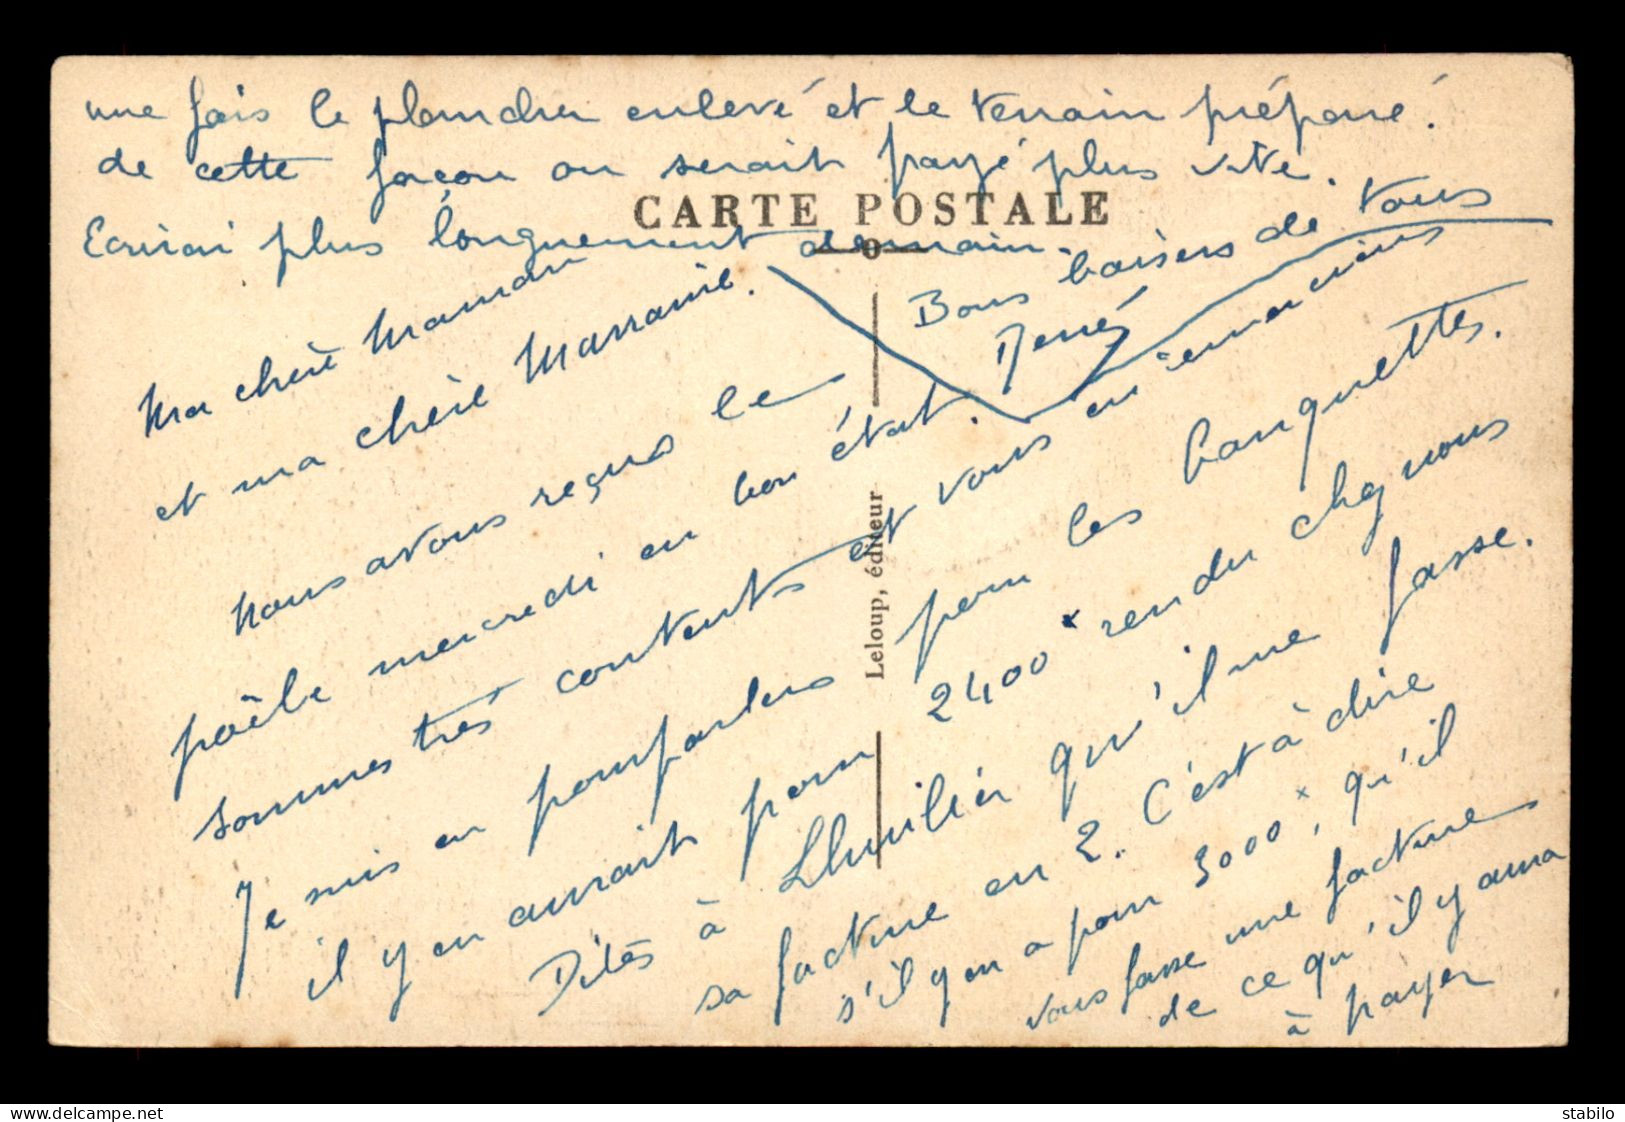 Ma chère Maman
et ma chère Marraine.
nous avons reçus le
poêle mercredi en bon état.
sommes très contents et vous en remercions
Je suis en pourparlers pour les banquettes.
il y en aurait pour 2400 x rendu chez nous
Dites à Lhuilier qu'il me fasse.
sa facture en 2. C'est à dire
s'il y en a pour 3000 x, qu'il
vous fasse une facture
de ce qu'il y aura
à payer
une fois le plancher enlevé et le terrain préparé.
de cette façon on serait payé plus vite.
Ecrirai plus longuement demain.
Bons baisers de tous
René
CARTE POSTALE
Leloup, éditeur
delcampe.net
stabilo